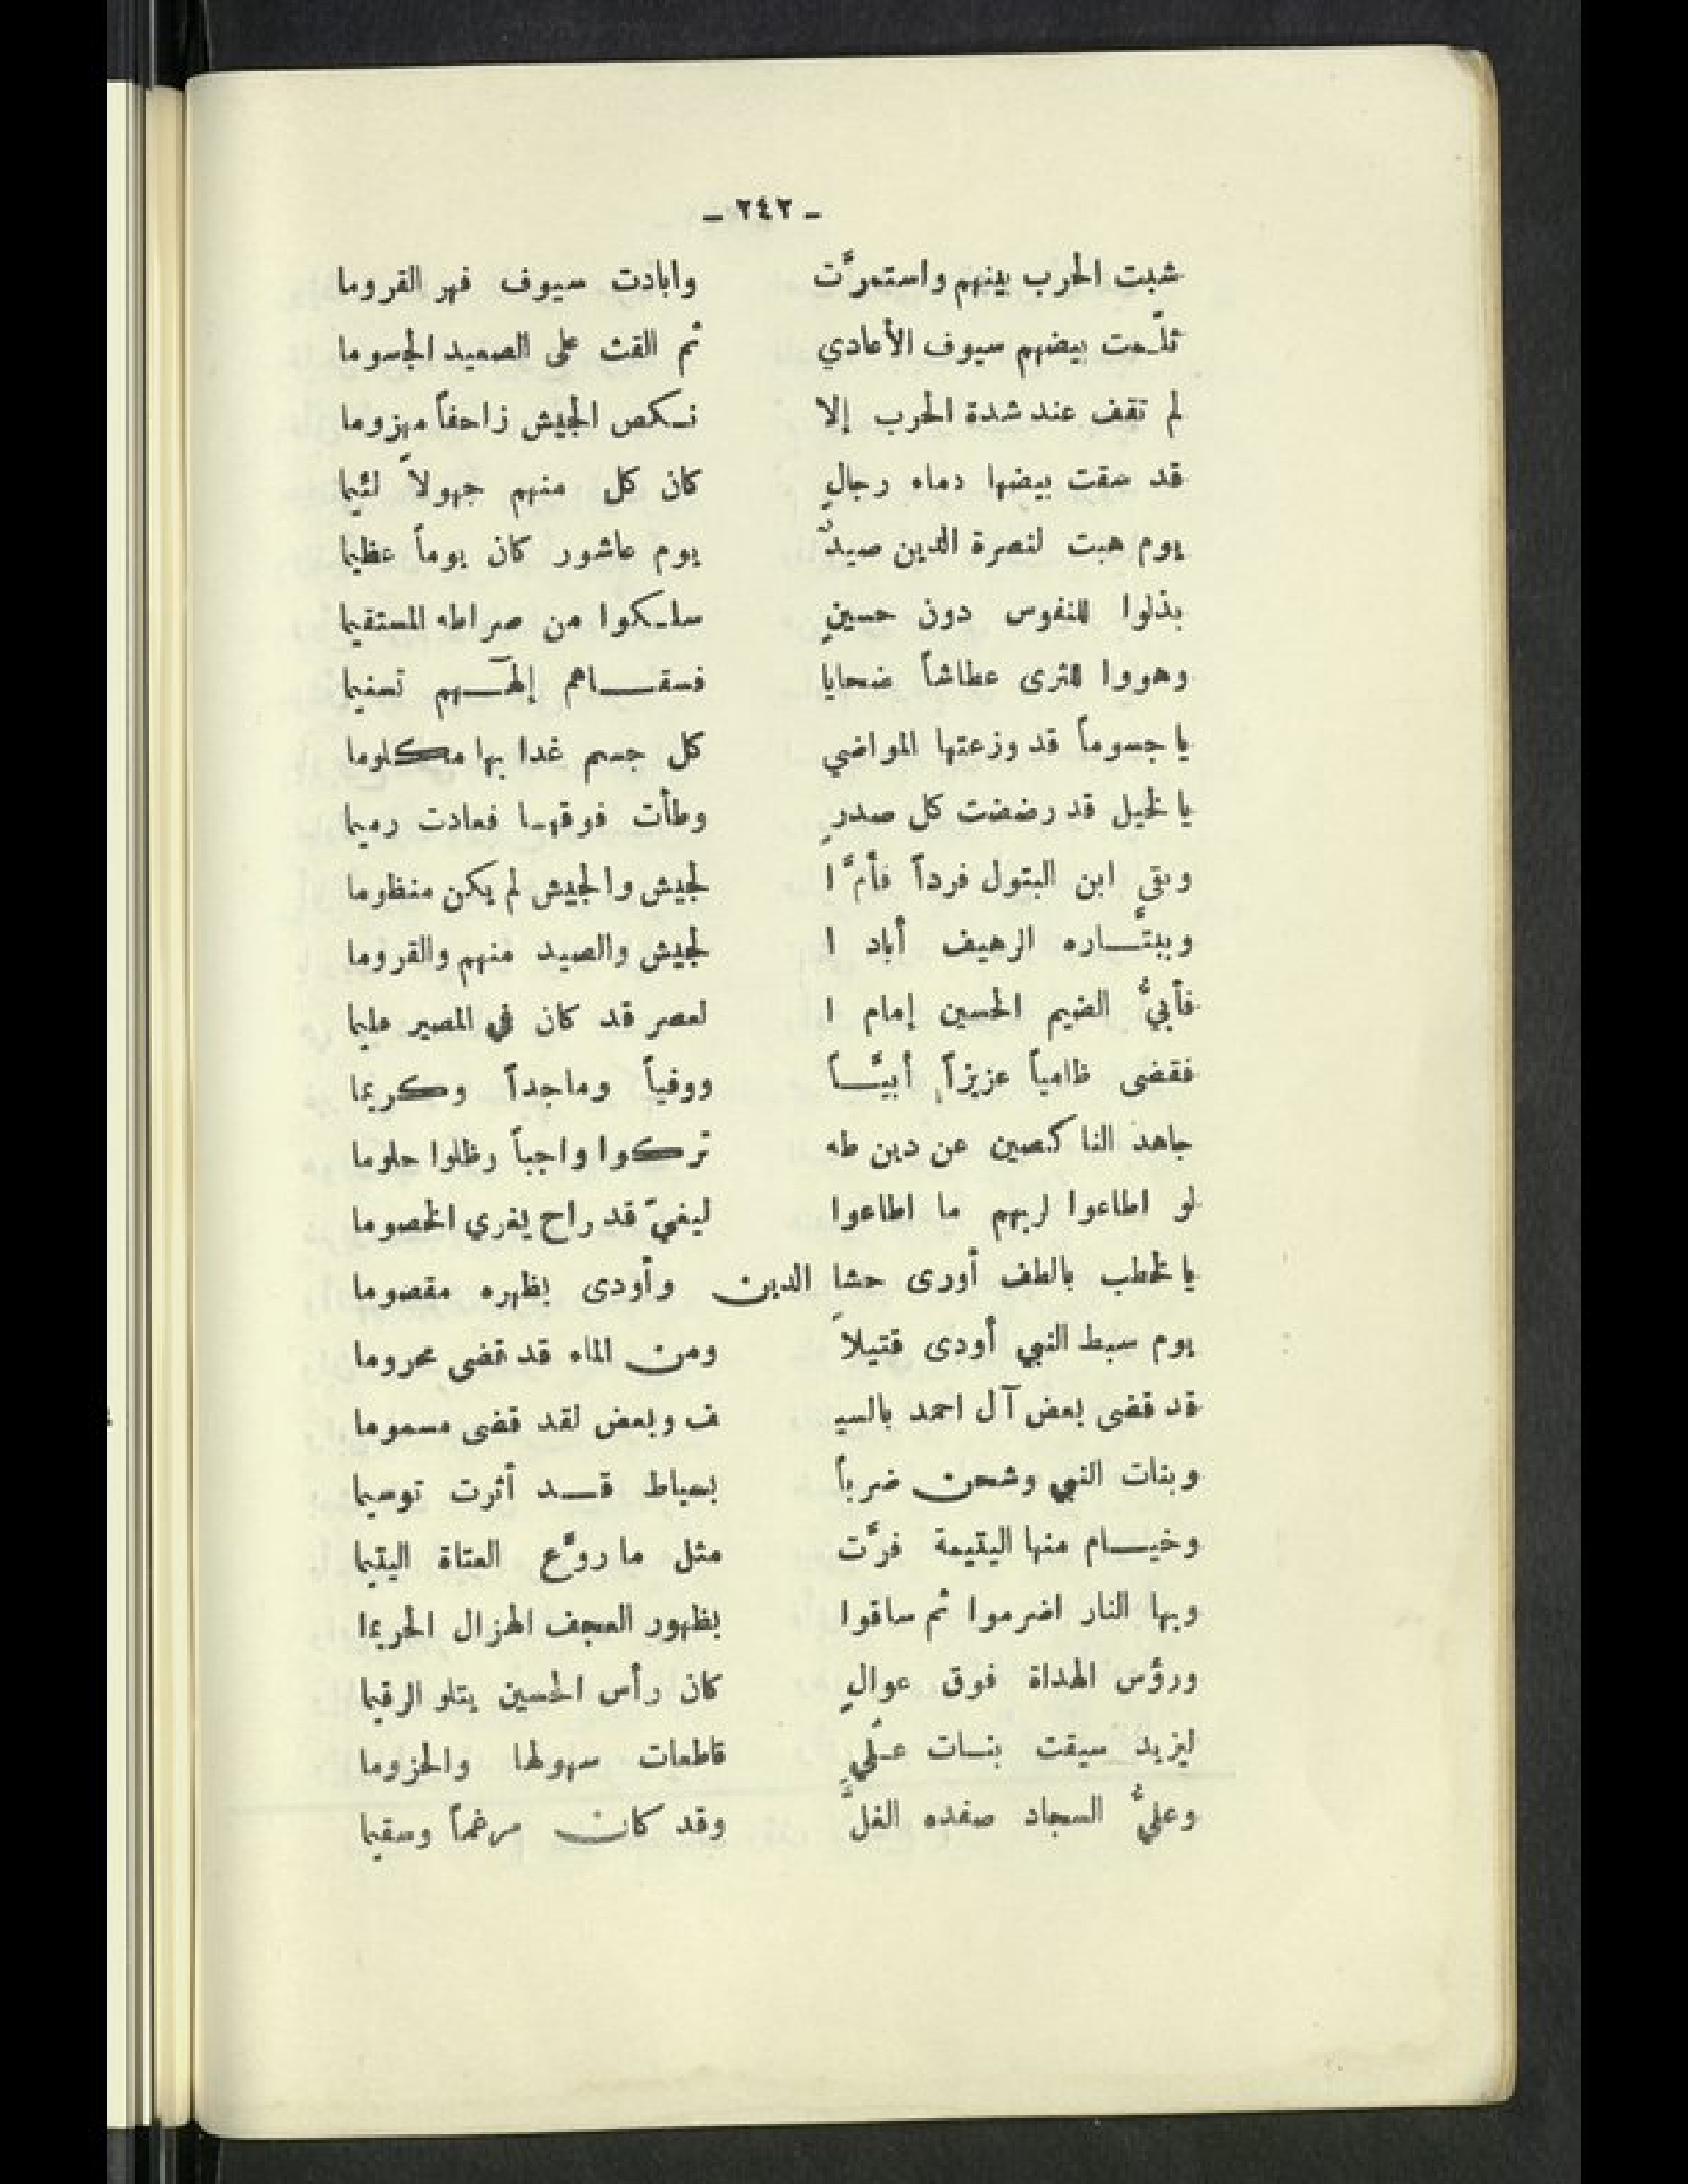 - ٢٤٢ -
شبت الحرب بينهم واستمرَّت وابادت سيوف فهر القروما
ثلّمت بيضهم سيوف الأعادي ثم القت على الصعيد الجسوما
لم تقف عند شدة الحرب إلا نكص الجيش زاحفاً مهزوما
قد سقت بيضها دماء رجالٍ كان كل منهم جهولاً لئيما
يوم هبت لنصرة الدين صيدٌ يوم عاشور كان يوماً عظيما
بذلوا للنفوس دون حسينٍ سلكوا من صراطه المستقيما
وهووا للثرى عطاشاً ضحايا فسقاهم إلهٓهم تسنيما
يا جسوماً قد وزعتها المواضي كل جسم غدا بها مكلوما
يا لخيل قد رضضت كل صدرٍ وطأت فوقها فعادت رميما
وبقي ابن البتول فرداً فأمَّ ا لجيش والجيش لم يكن منظوما
وببتَّاره الرهيف أباد ا لجيش والصيد منهم والقروما
فأبيُّ الضيم الحسين إمام ا لعصر قد كان في المصير عليما
فقضى ظامياً عزيزاً أبيَّاً ووفياً وماجداً وكريما
جاهد الناكصين عن دين طه تركوا واجباً وظلوا حلوما
لو اطاعوا لربهم ما اطاعوا ليغيّ قد راح يغري الخصوما
يا لخطب بالطف أورى حشا الدين وأودى بظهره مقصوما
يوم سبط النبي أودى قتيلاً ومن الماء قد قضى محروما
قد قضى بعض آل احمد بالسيـ ف وبعض لقد قضى مسموما
وبنات النبي وشحن ضرباً بسياط قد أثرت توسيما
وخيام منها اليتيمة فرَّت مثل ما روَّع العتاة اليتيما
وبها النار اضرموا ثم ساقوا بظهور العجف الهزال الحريما
ورؤس الهداة فوق عوالٍ كان رأس الحسين يتلو الرقيما
ليزيد سيقت بنات علَيٍ قاطعات سهولها والحزوما
وعليُّ السجاد صفده الغلُّ وقد كان مرغماً وسقيما